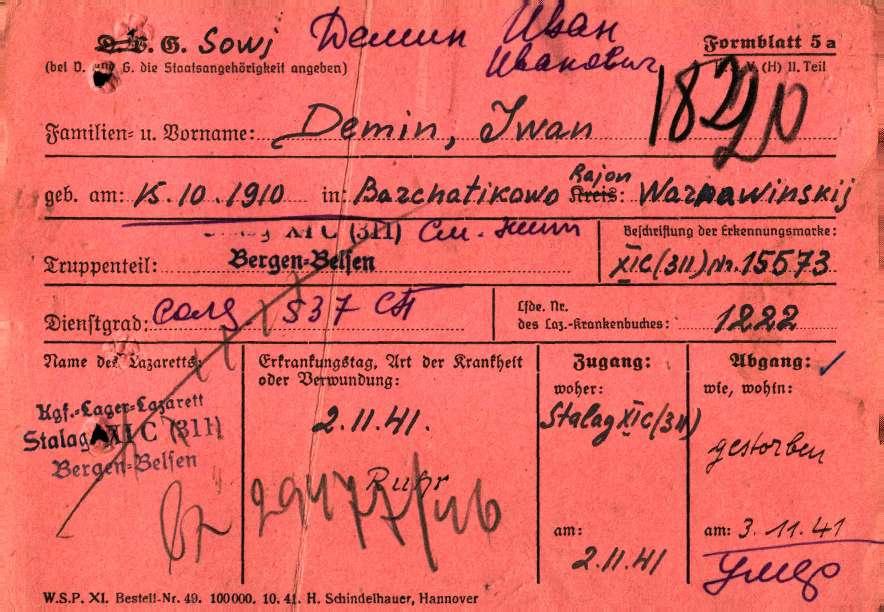 D. u. G. Sowj Демин Иван Formblatt 5a
(bei D. und G. die Staatsangehörigkeit angeben) Иванович (H) II. Teil
Familien- u. Vorname: Demin, Iwan 1820
geb. am: 15.10.1910 in: Barchatikowo Kreis: Rajon Warnawinskij
XI C (311) См. Beschriftung der Erkennungsmarke:
Truppenteil: Bergen-Belsen XIC(311) Nr. 15573
Dienstgrad: солд 537 СП Lfde. Nr.
des Laz.-Krankenbuches: 1222
Name des Lazaretts: Erkrankungstag, Art der Krankheit Zugang: Abgang:
oder Verwundung: woher: wie, wohin:
Kgf.-Lager-Lazarett 2.11.41. Stalag XIC(311) gestorben
Stalag XI C (311)
Bergen-Belsen
Ruhr
29477/46
am: am: 3.11.41
2.11.41 умер
W.S.P. XI. Bestell-Nr. 49. 100000. 10. 41. H. Schindelhauer, Hannover